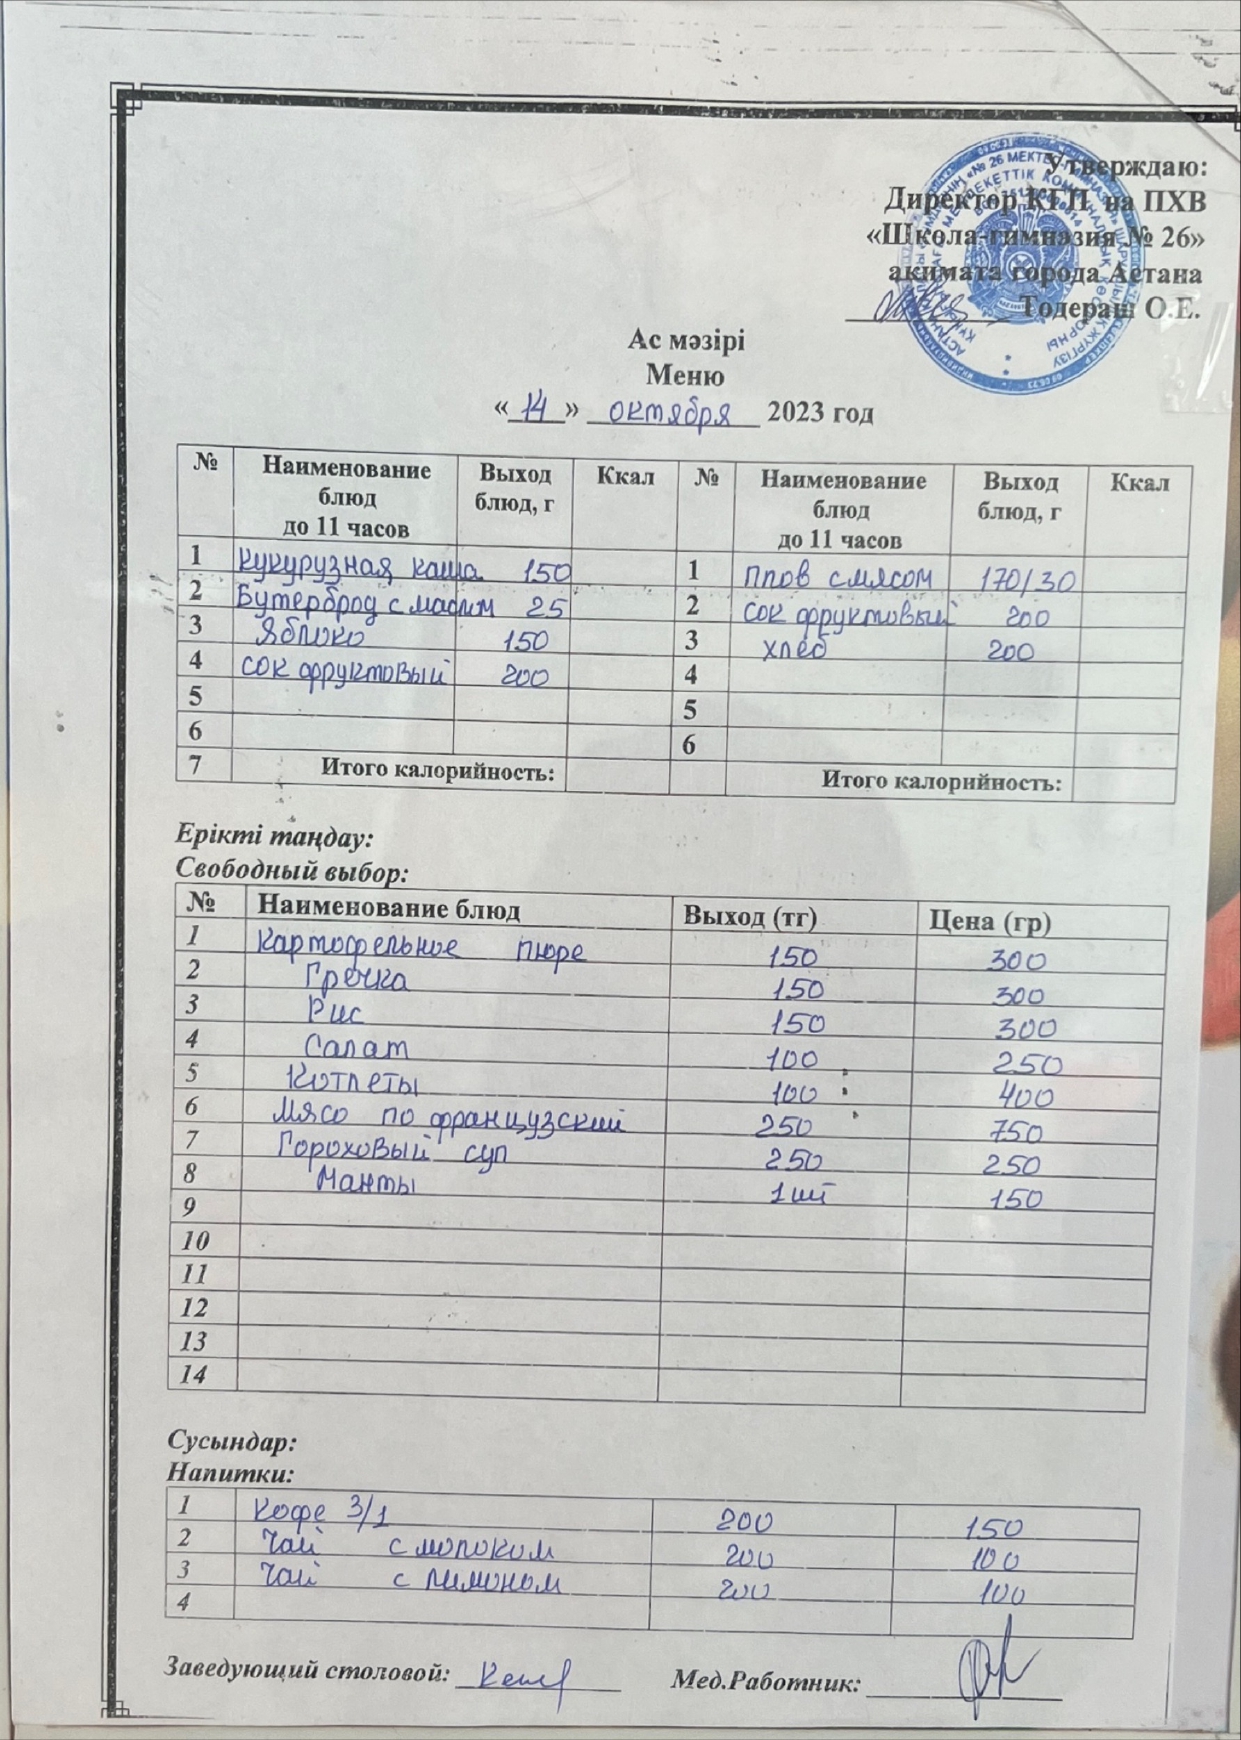 Утверждаю:
Директор КГП на ПХВ
«Школа-гимназия № 26»
акимата города Астана
Тодераш О.Е.
Ас мәзірі
Меню
«14» октября 2023 год
№ Наименование блюд до 11 часов Выход блюд, г Ккал № Наименование блюд до 11 часов Выход блюд, г Ккал
1 Кукурузная каша 150 1 Плов с мясом 170/30
2 Бутерброд с маслм 25 2 сок фруктовый 200
3 Яблоко 150 3 хлеб 200
4 сок фруктовый 200 4
5 5
6 6
7 Итого калорийность: Итого калорийность:
Ерікті таңдау:
Свободный выбор:
№ Наименование блюд Выход (тг) Цена (гр)
1 Картофельное пюре 150 300
2 Гречка 150 300
3 Рис 150 300
4 Салат 100 250
5 Котлеты 100 400
6 Мясо по французский 250 750
7 Гороховый суп 250 250
8 Манты 1шт 150
9
10
11
12
13
14
Сусындар:
Напитки:
1 Кофе 3/1 200 150
2 Чай с молоком 200 100
3 Чай с лимоном 200 100
4
Заведующий столовой: Мед.Работник: